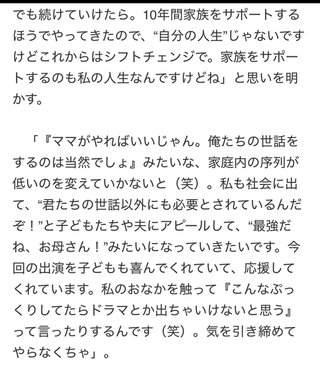 でも続けていけたら。10年間家族をサポートする
ほうでやってきたので、“自分の人生”じゃないです
けどこれからはシフトチェンジで。家族をサポー
トするのも私の人生なんですけどね」と思いを明
かす。
「『ママがやればいいじゃん。俺たちの世話を
するのは当然でしょ』みたいな、家庭内の序列が
低いのを変えていかないと（笑）。私も社会に出
て、“君たちの世話以外にも必要とされているんだ
ぞ！”と子どもたちや夫にアピールして、“最強だ
ね、お母さん！”みたいになっていきたいです。今
回の出演を子どもも喜んでくれていて、応援して
くれています。私のおなかを触って『こんなぷっ
くりしてたらドラマとか出ちゃいけないと思う』
って言ったりするんです（笑）。気を引き締めて
やらなくちゃ」。